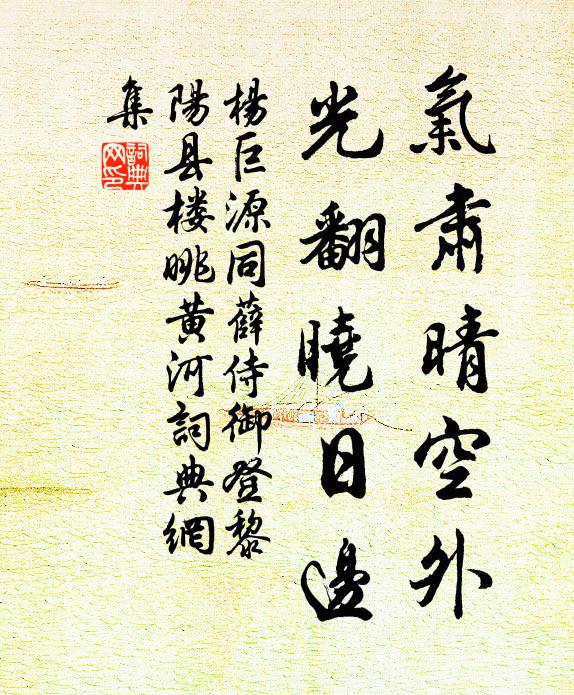 氣肅晴空外
光翻曉日邊
楊巨源同薛侍御登黎
陽县楼眺黄河詞典網
集
詞典
网印